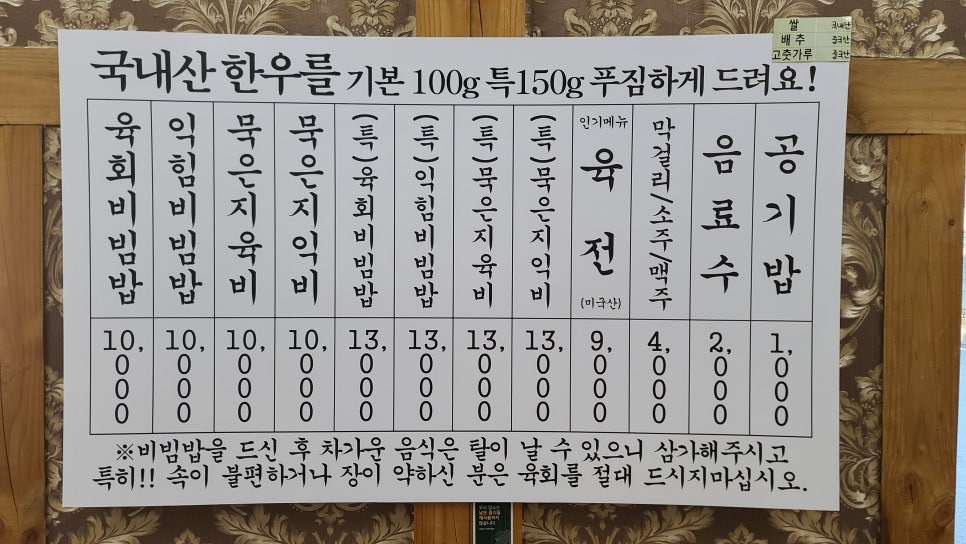 쌀 국내산
배추 중국산
고춧가루 중국산
국내산 한우를 기본 100g 특150g 푸짐하게 드려요!
육회비빔밥 10,000
익힘비빔밥 10,000
묵은지육비 10,000
묵은지익비 10,000
(특)육회비빔밥 13,000
(특)익힘비빔밥 13,000
(특)묵은지육비 13,000
(특)묵은지익비 13,000
인기메뉴
육전
(미국산)
9,000
막걸리/소주/맥주 4,000
음료수 2,000
공기밥 1,000
※비빔밥을 드신 후 차가운 음식은 탈이 날 수 있으니 삼가해주시고
특히!! 속이 불편하거나 장이 약하신 분은 육회를 절대 드시지마십시오.